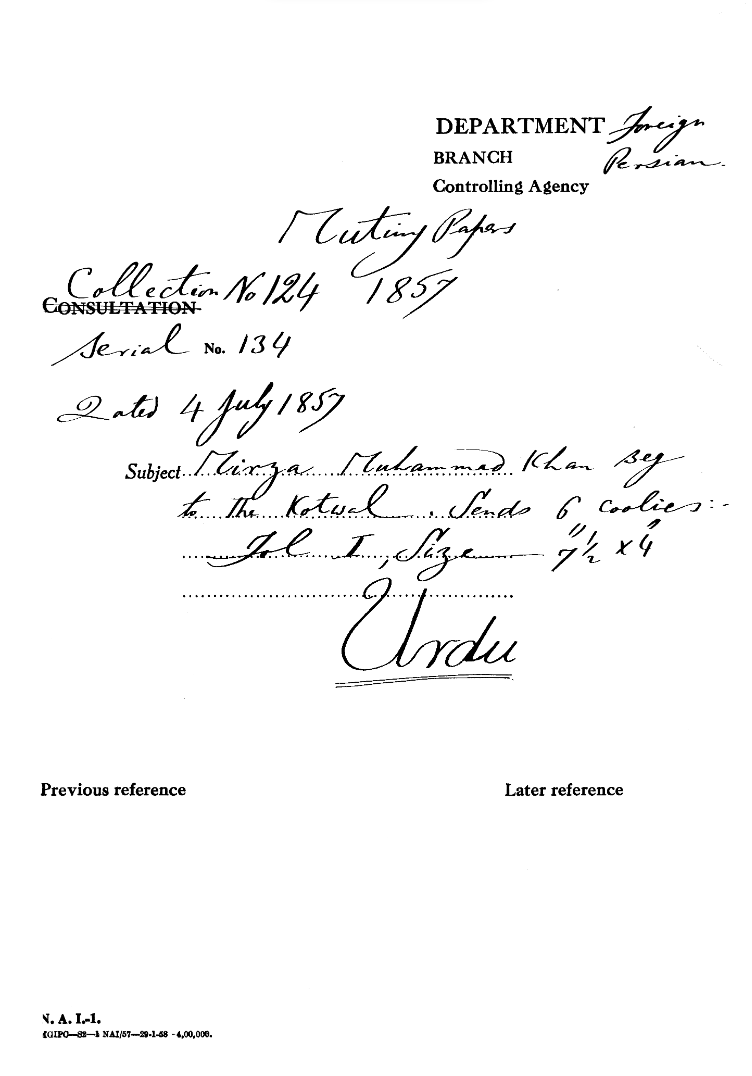 DEPARTMENT Foreign
BRANCH Persian.
Controlling Agency
Mutiny Papers
Collection No 124 1857
CONSULTATION
Serial No. 134
Dated 4 July 1857
Subject Mirza Muhammad Khan Beg
to the Kotwal. Sends 6 coolies:-
Fol I, Size 7½" x 4"
Urdu
Previous reference
Later reference
N. A. I.-1.
NAI/57—29-1-58 -4,00,000.